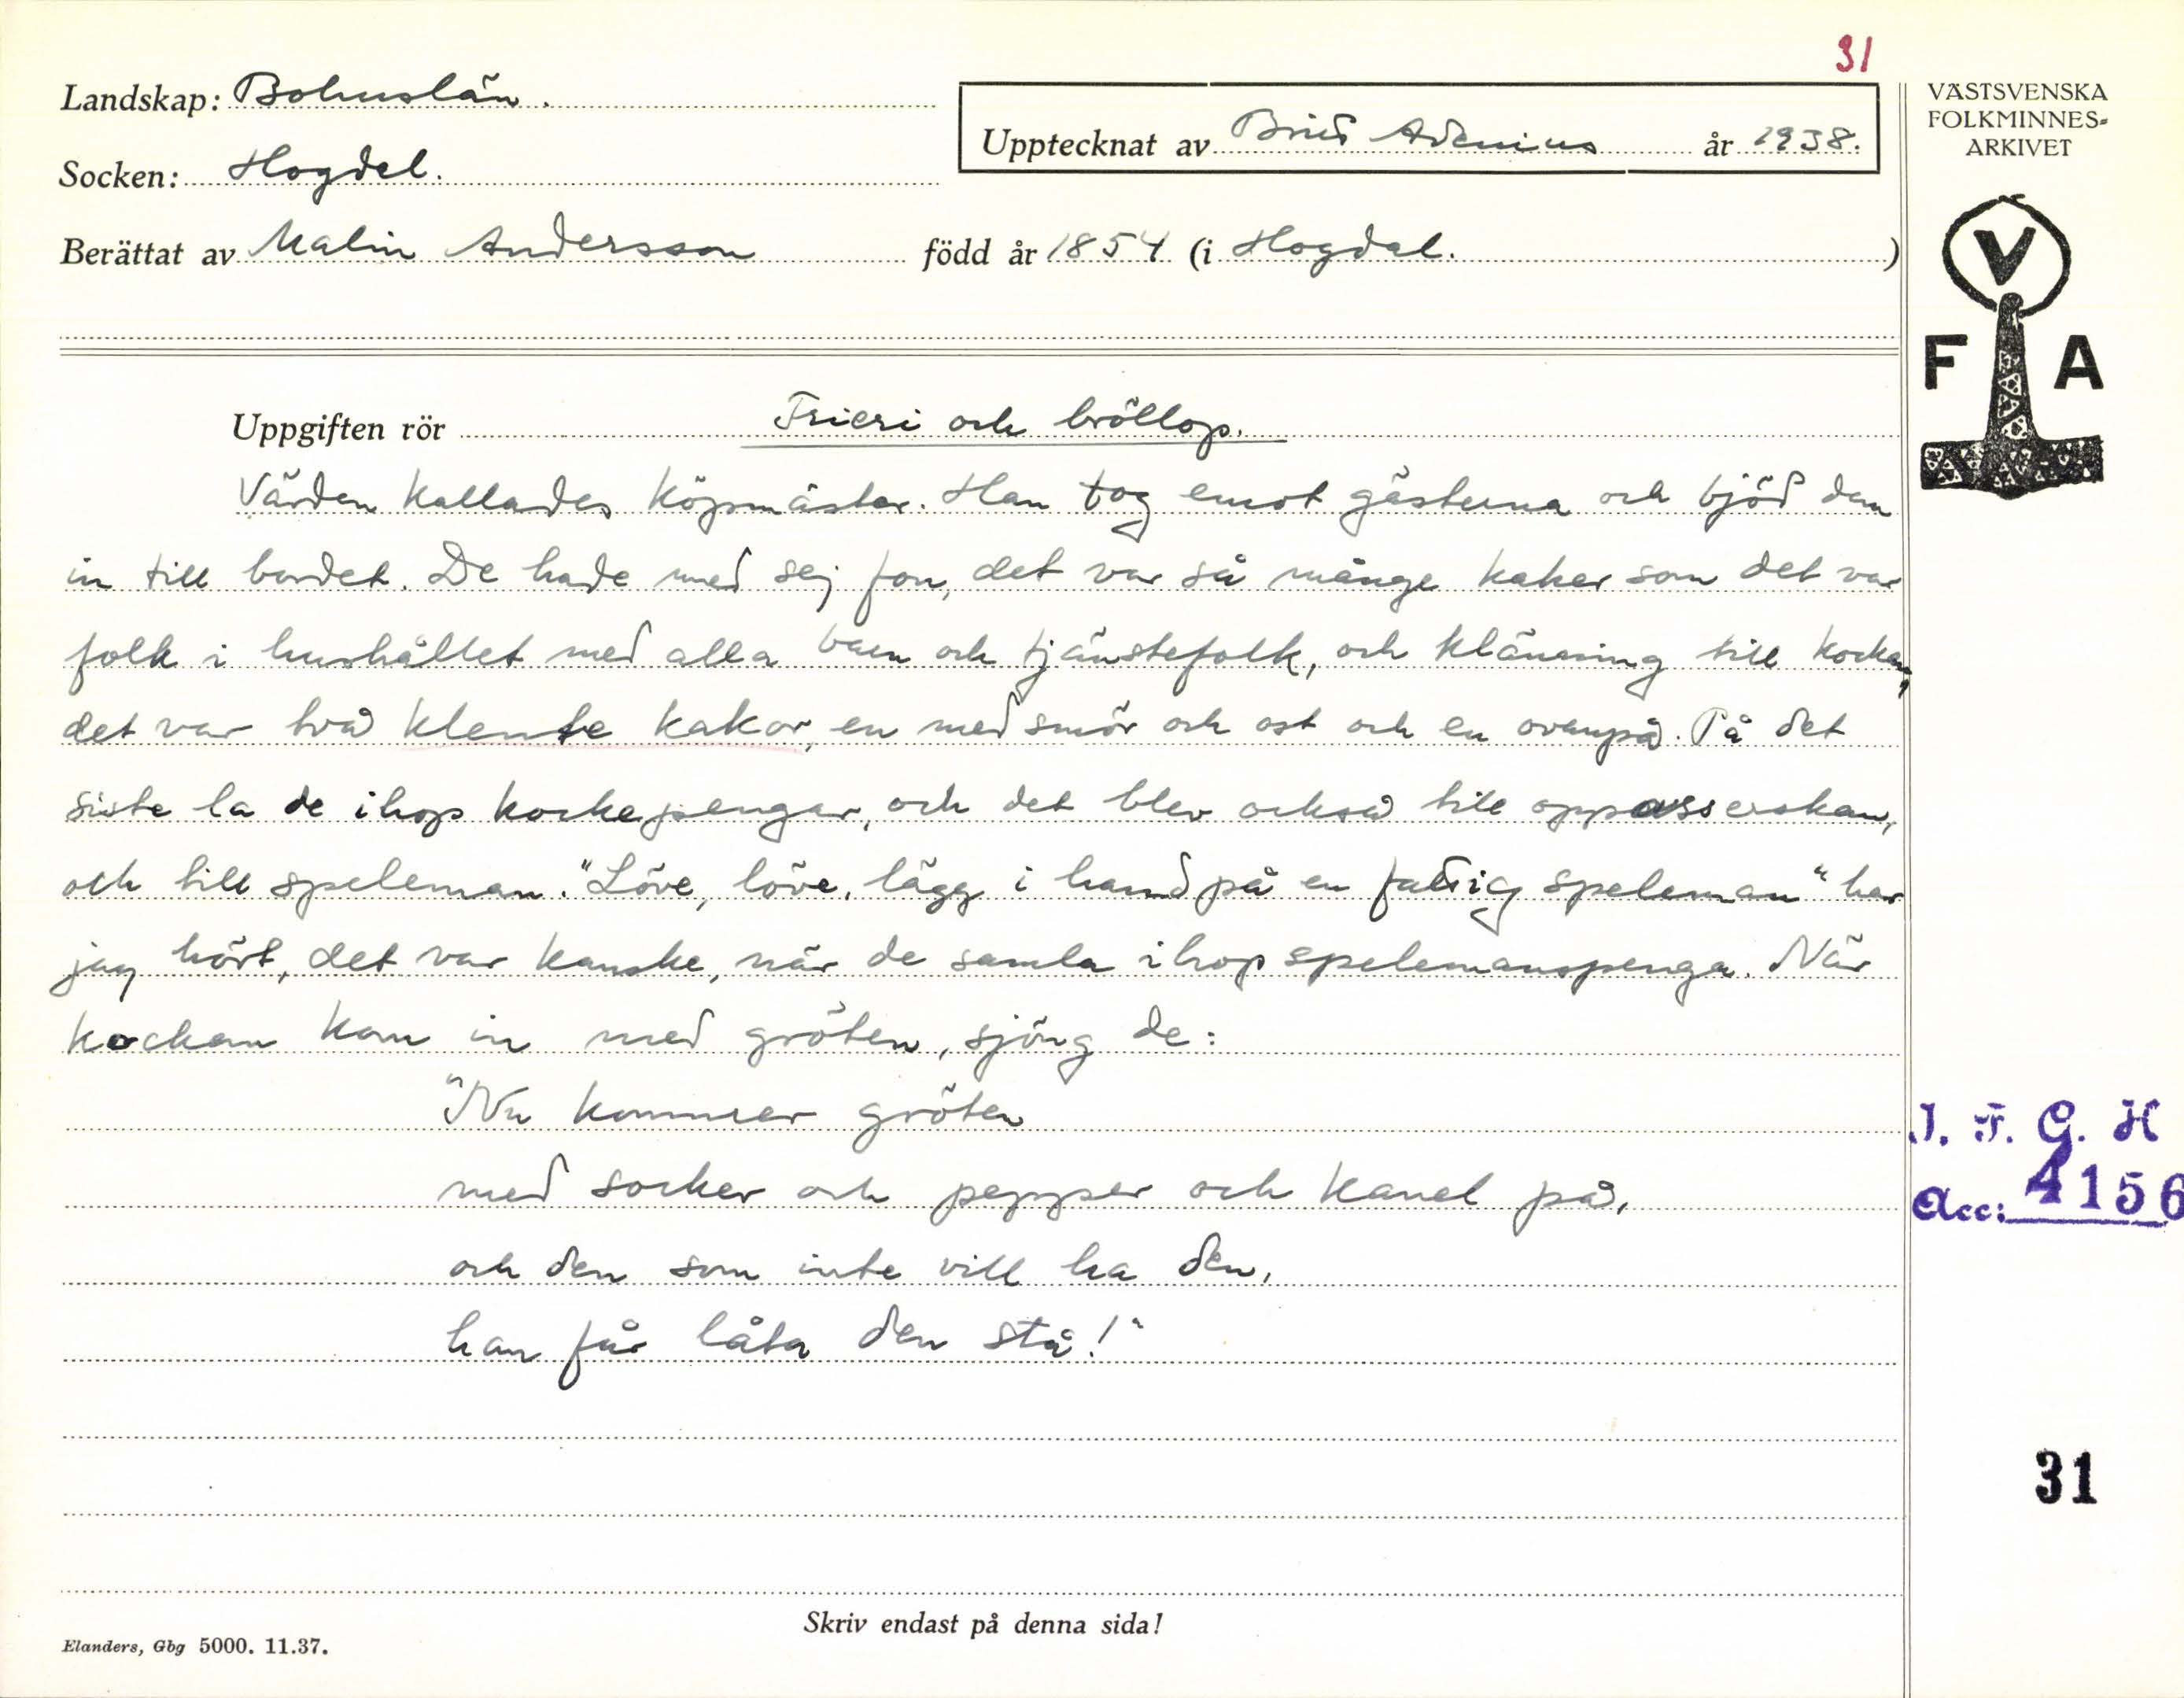 31
Landskap: Bohuslän.
Upptecknat av Brita Adenius år 1938.
Socken: Hogdal.
Berättat av Malin Andersson född år 1854 (i Hogdal.)
VÄSTSVENSKA
FOLKMINNES=
ARKIVET
V
F A
Uppgiften rör Frieri och bröllop.
Värden kallades köpmäster. Han tog emot gästerna och bjöd dem
in till bordet. De hade med sej fon, det var så mánge kaker som det var
folk i hushållet med alla barn och tjänstefolk, och klänning till kockan,
det var två klente kakor, en med smör och ost och en ovanpå. På det
siste la de ihop kockepengar, och det blev också till oppasserskan,
och till speleman. "Löve, löve, lägg i hand på en fattig speleman" har
jag hört, det var kanske, när de samla ihop spelemanspenga. När
kockan kom in med gröten, sjöng de:
"Nu kommer gröten
med socker och pepper och kanel på,
och den som inte vill ha den,
han får låta den stå!"
I. F. G. H
Acc: 4156
31
Skriv endast på denna sida!
Elanders, Gbg 5000. 11.37.